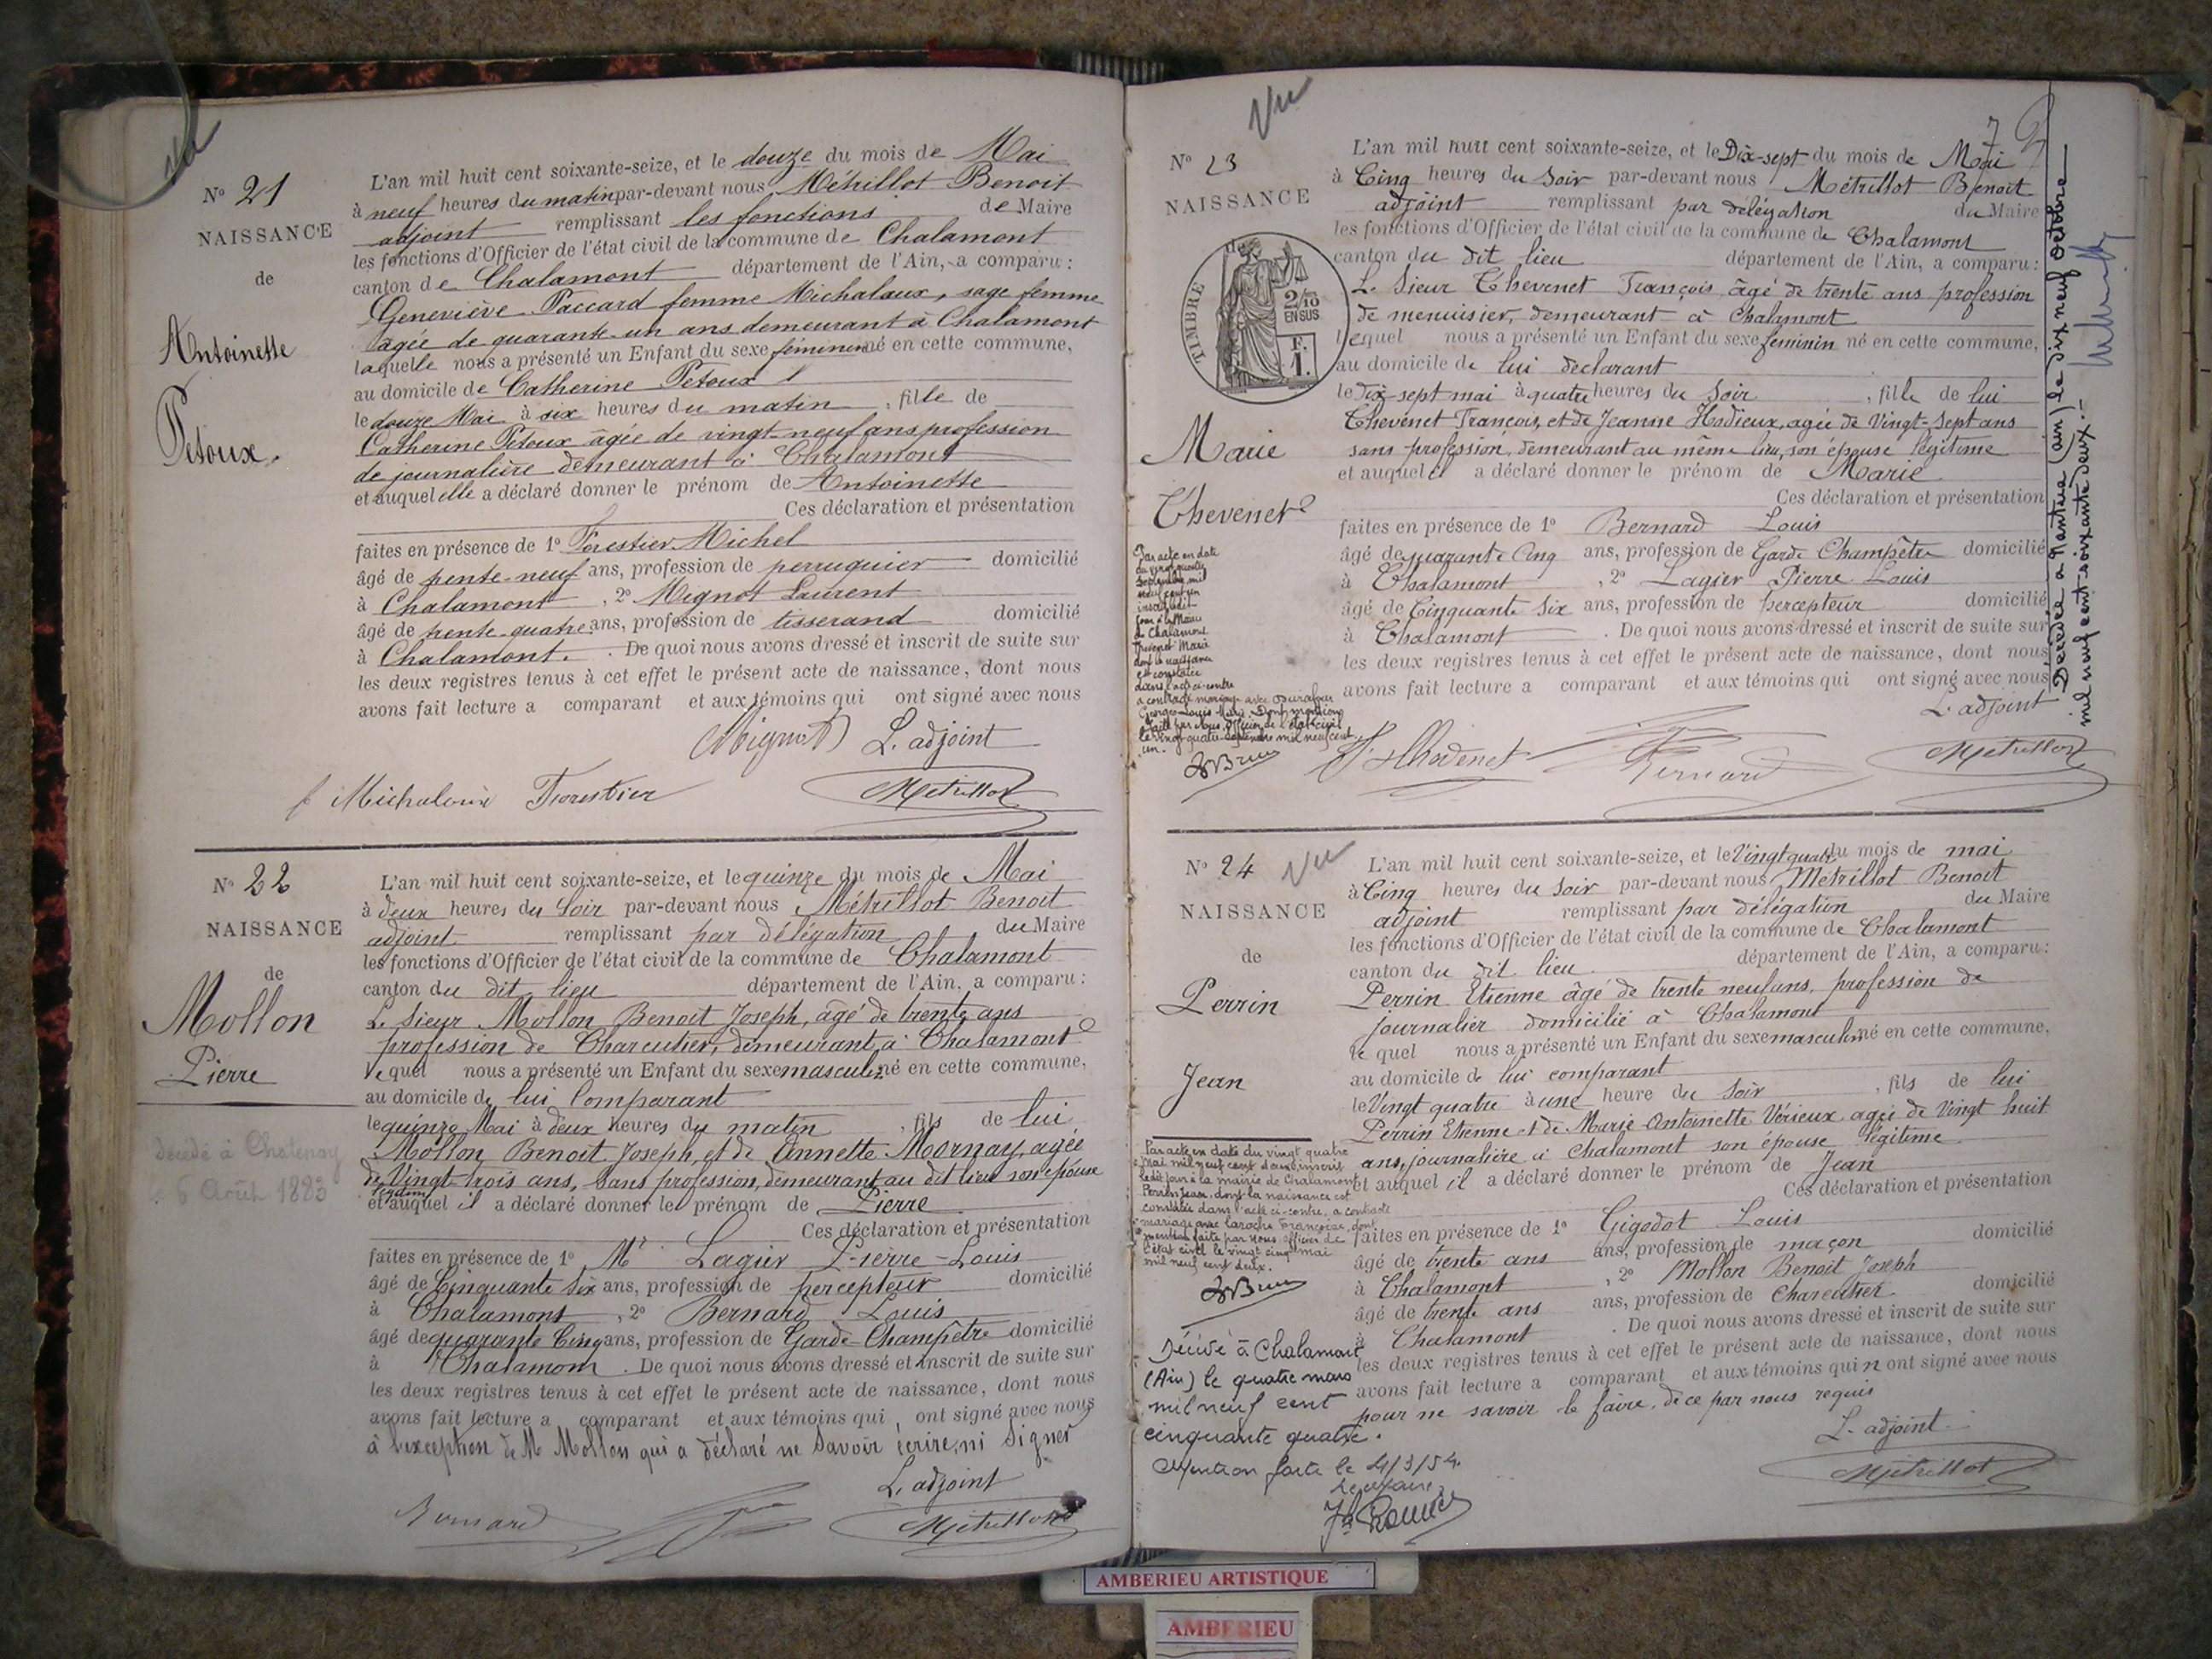 Vu
N° 21
NAISSANCE
de
Antoinette
Petoux.
L'an mil huit cent soixante-seize, et le douze du mois de Mai
à neuf heures du matin par-devant nous Métrillot Benoit
adjoint remplissant les fonctions de Maire
les fonctions d'Officier de l'état civil de la commune de Chalamont
canton de Chalamont département de l'Ain, a comparu :
Geneviève Paccard femme Michaloux, sage femme
âgée de quarante-un ans demeurant à Chalamont
laquelle nous a présenté un Enfant du sexe féminin né en cette commune,
au domicile de Catherine Petoux
le douze Mai à six heures du matin, fille de
Catherine Petoux âgée de vingt-neuf ans profession
de journalière demeurant à Chalamont
et auquel elle a déclaré donner le prénom de Antoinette
Ces déclaration et présentation
faites en présence de 1° Forestier Michel
âgé de trente-neuf ans, profession de perruquier domicilié
à Chalamont, 2° Mignot Laurent
âgé de trente-quatre ans, profession de tisserand domicilié
à Chalamont. De quoi nous avons dressé et inscrit de suite sur
les deux registres tenus à cet effet le présent acte de naissance, dont nous
avons fait lecture a comparant et aux témoins qui ont signé avec nous
Mignot L. adjoint
f Michaloux Forestier Métrillot
N° 22
NAISSANCE
de
Mollon
Pierre
décédé à Chatenay
6 Août 1883
L'an mil huit cent soixante-seize, et le quinze du mois de Mai
à deux heures du Soir par-devant nous Métrillot Benoit
adjoint remplissant par délégation du Maire
les fonctions d'Officier de l'état civil de la commune de Chalamont
canton du dit lieu département de l'Ain, a comparu :
Le Sieur Mollon Benoit Joseph, âgé de trente ans
profession de Charcutier, demeurant à Chalamont
lequel nous a présenté un Enfant du sexe masculin né en cette commune,
au domicile de lui Comparant
le quinze Mai à deux heures du matin, fils de lui
Mollon Benoit Joseph, et de Annette Mornay, agée
de Vingt-trois ans, Sans profession, demeurant au dit lieu son épouse
légitime
et auquel il a déclaré donner le prénom de Pierre
Ces déclaration et présentation
faites en présence de 1° Mr Lagier Pierre-Louis
âgé de Cinquante Six ans, profession de percepteur domicilié
à Chalamont, 2° Bernard Louis
âgé de quarante Cinq ans, profession de Garde-Champêtre domicilié
à Chalamont. De quoi nous avons dressé et inscrit de suite sur
les deux registres tenus à cet effet le présent acte de naissance, dont nous
avons fait lecture a comparant et aux témoins qui ont signé avec nous
à l'exception de M Mollon qui a déclaré ne Savoir écrire, ni Signer
L. adjoint
Bernard Métrillot
Vu
7
N° 23
NAISSANCE
de
TIMBRE
2/10
EN SUS
F.
1.
Marie
Thevenet
Par acte en date
du vingt quatre
Septembre mil
neuf cent un
inscrit ledit
jour à la Mairie
de Chalamont
Thevenet Marie
dont la naissance
est constatée
dans l'acte ci-contre
a contracté mariage avec Durafour
Georges Louis Marie. Dont mention
faite par Nous, Officier de l'état civil
le vingt quatre Septembre mil neuf cent
un.
L'an mil huit cent soixante-seize, et le Dix-sept du mois de Mai
à Cinq heures du Soir par-devant nous Métrillot Benoit
adjoint remplissant par délégation du Maire
les fonctions d'Officier de l'état civil de la commune de Chalamont
canton du dit lieu département de l'Ain, a comparu :
Le Sieur Thevenet François, âgé de trente ans profession
de menuisier, demeurant à Chalamont
lequel nous a présenté un Enfant du sexe feminin né en cette commune,
au domicile de lui déclarant
le Dix-sept mai à quatre heures du Soir, fille de lui
Thevenet François, et de Jeanne Hodieux, agée de Vingt-Sept ans
sans profession, demeurant au même lieu, son épouse légitime
et auquel il a déclaré donner le prénom de Marie
Ces déclaration et présentation
faites en présence de 1° Bernard Louis
âgé de quarante Cinq ans, profession de Garde Champêtre domicilié
à Chalamont, 2° Lagier Pierre Louis
âgé de Cinquante Six ans, profession de percepteur domicilié
à Chalamont. De quoi nous avons dressé et inscrit de suite sur
les deux registres tenus à cet effet le présent acte de naissance, dont nous
avons fait lecture a comparant et aux témoins qui ont signé avec nous
L. adjoint
Thevenet Bernard Métrillot
Décédée à Nantua (Ain) le dix neuf octobre
mil neuf cent soixante deux.-
N° 24
Vu
NAISSANCE
de
Perrin
Jean
Par acte en date du vingt quatre
Mai mil neuf cent deux, inscrit
ledit jour à la mairie de Chalamont
Perrin Jean, dont la naissance est
constatée dans l'acte ci-contre, a contracté
mariage avec Laroche Françoise, dont
mention faite par Nous Officier de
l'état civil le vingt cinq mai
mil neuf cent deux.
Décédé à Chalamont
(Ain) le quatre mars
mil neuf cent
cinquante quatre.
Mention faite le 4/3/54.
L'an mil huit cent soixante-seize, et le Vingt quatre du mois de mai
à Cinq heures du Soir par-devant nous Métrillot Benoit
adjoint remplissant par délégation du Maire
les fonctions d'Officier de l'état civil de la commune de Chalamont
canton du dit lieu département de l'Ain, a comparu :
Perrin Etienne âgé de trente neuf ans, profession de
journalier domicilié à Chalamont
le quel nous a présenté un Enfant du sexe masculin né en cette commune,
au domicile de lui comparant
le Vingt quatre à une heure du Soir, fils de lui
Perrin Etienne et de Marie Antoinette Vérieux agée de Vingt huit
ans, journalière à Chalamont son épouse légitime
et auquel il a déclaré donner le prénom de Jean
Ces déclaration et présentation
faites en présence de 1° Gigodot Louis
âgé de trente ans ans, profession de maçon domicilié
à Chalamont, 2° Mollon Benoit Joseph
âgé de trente ans ans, profession de Charcutier domicilié
à Chalamont. De quoi nous avons dressé et inscrit de suite sur
les deux registres tenus à cet effet le présent acte de naissance, dont nous
avons fait lecture a comparant et aux témoins qui n ont signé avec nous
pour ne savoir le faire, de ce par nous requis
L. adjoint
Métrillot
AMBERIEU ARTISTIQUE
AMBERIEU